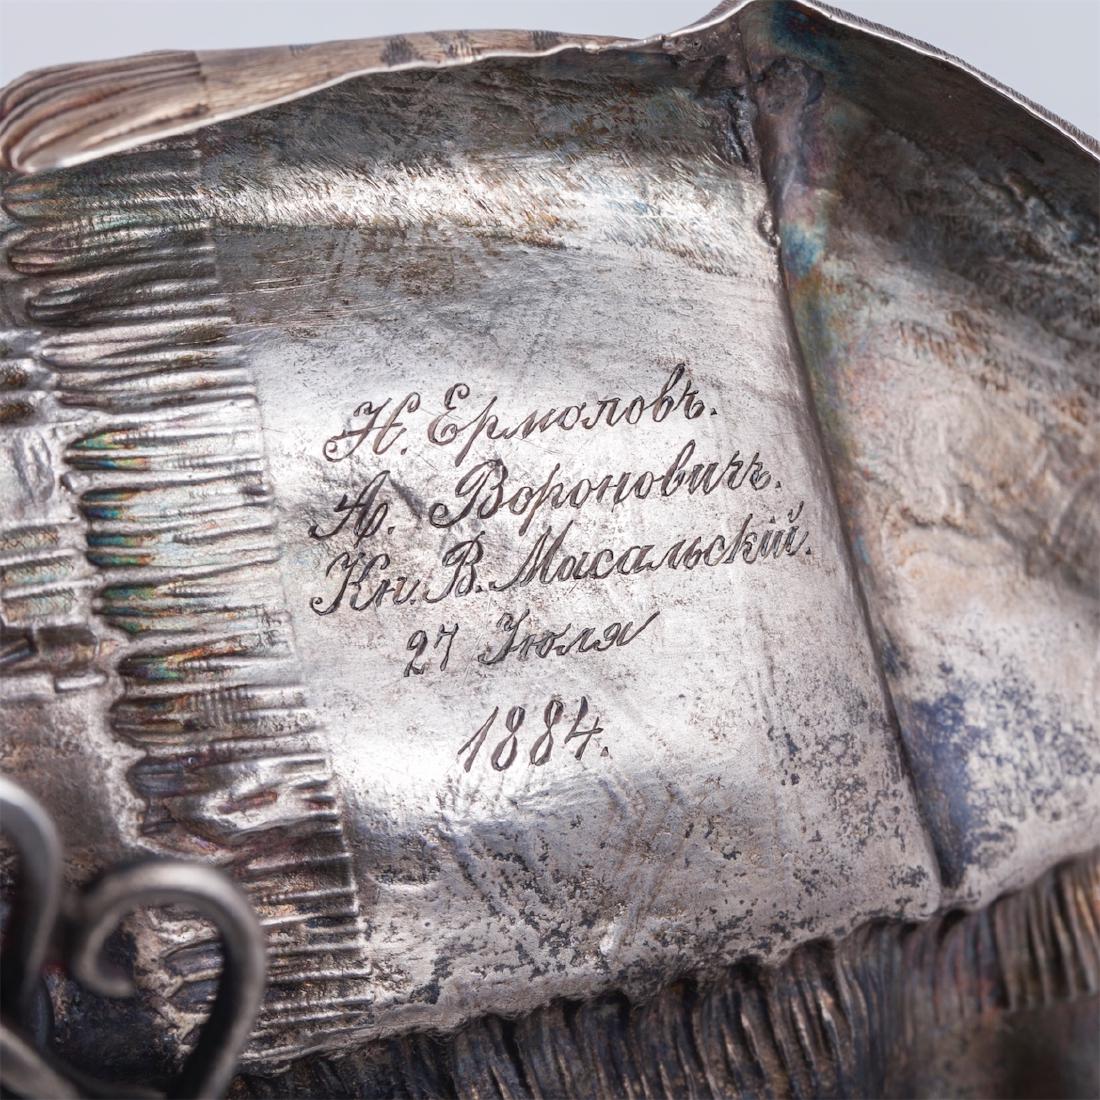 Н. Ермоловъ.
А. Вороновичъ.
Кн. В. Масальскій.
27 Іюля
1884.